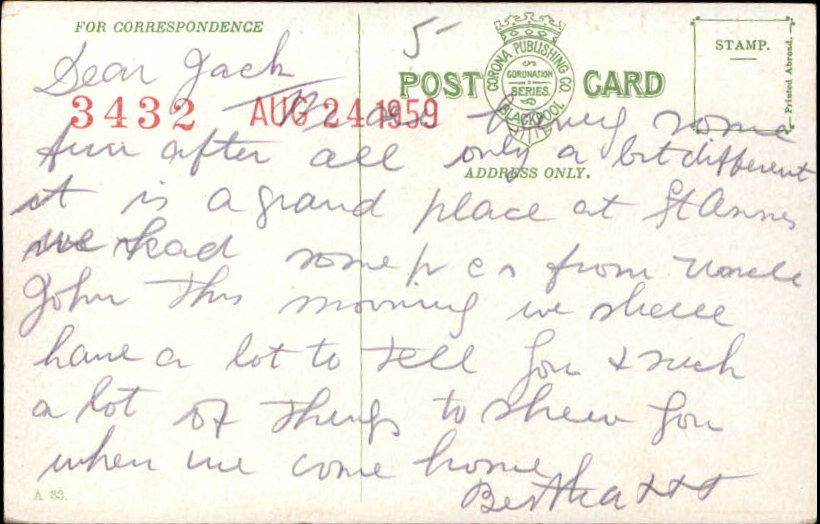 FOR CORRESPONDENCE
5-
CORONA PUBLISHING CO
CORONATION
SERIES.
BLACKPOOL
POST CARD
STAMP.
Printed Abroad.
ADDRESS ONLY.
3432 AUG 24 1959
Dear Jack
We are having some
fun after all only a bit different
it is a grand place at St Annes
we had some p cs from Uncle
John This morning we shall
have a lot to tell you & such
a lot of things to shew you
when we come home
Bertha xxx
A 33.